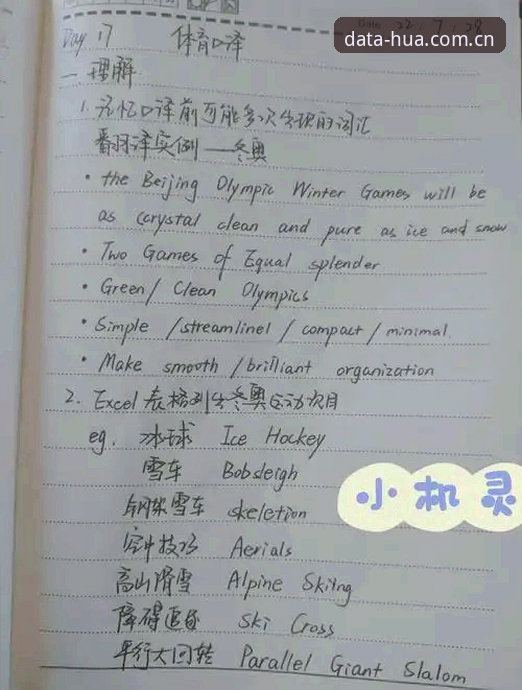 Date 22.7.29
data-hua.com.cn
Day 17 体育口译
一 理解
1. 记忆口译前可能多次出现的词汇
翻译实例——冬奥
• the Beijing Olympic Winter Games will be
as (crystal clean and pure as ice and snow
• Two Games of Equal splender
• Green/ Clean Olympics
• Simple /streamlinel / compact / minimal.
• Make smooth /brilliant organization
2. Excel 表格列出冬奥运动项目
eg. 冰球 Ice Hockey
雪车 Bobsleigh
小机灵
钢架雪车 skeletion
空中技巧 Aerials
高山滑雪 Alpine Skiing
障碍追逐 Ski Cross
平行大回转 Parallel Giant Slalom